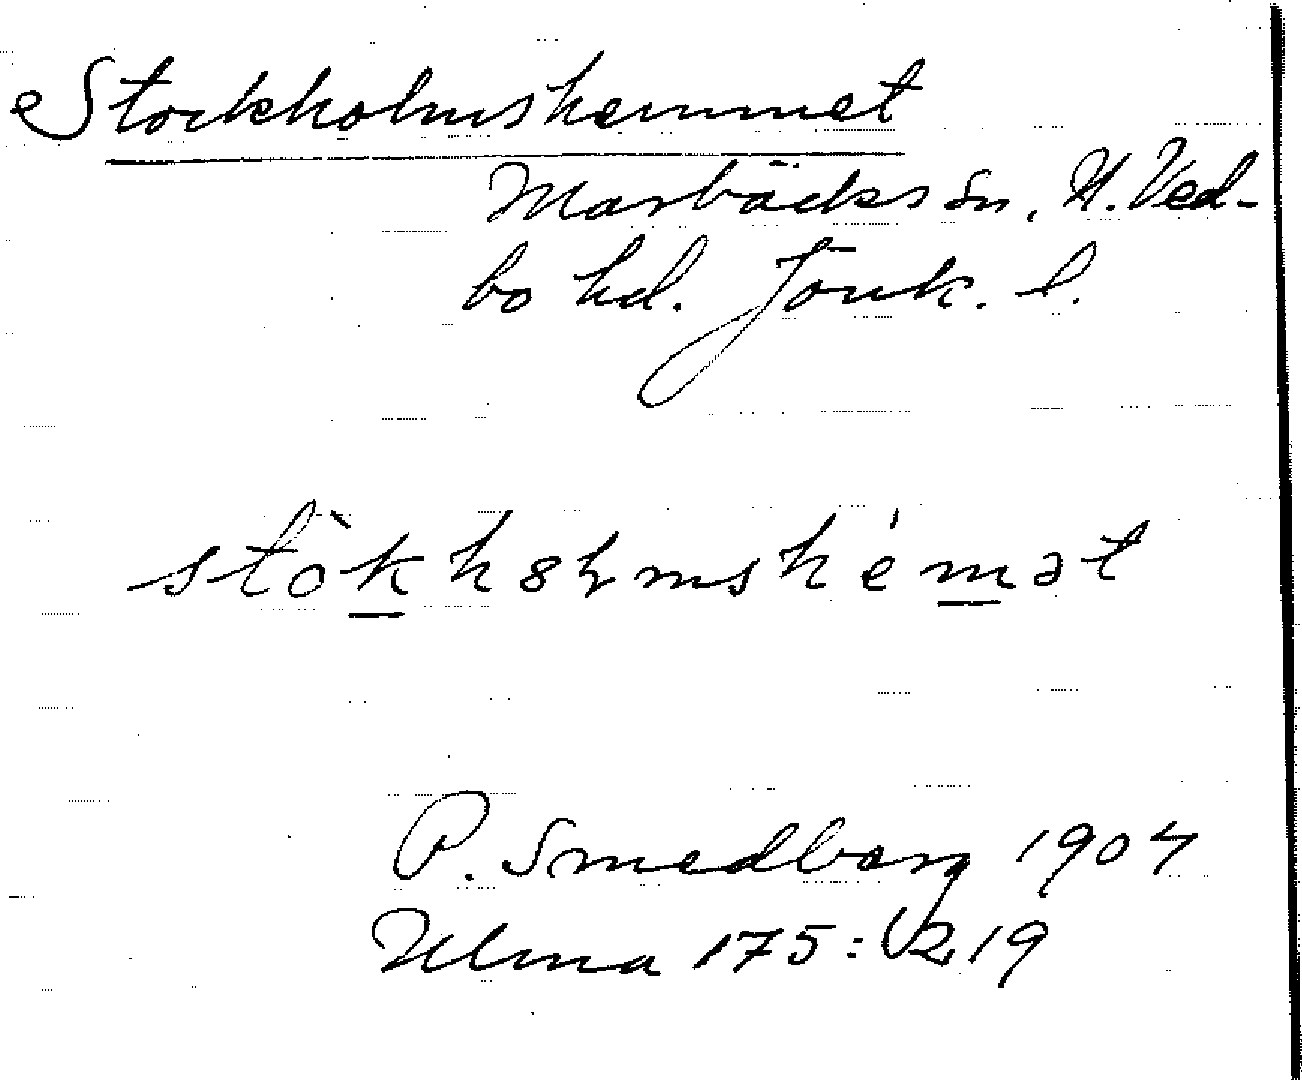 Stockholmshemmet
Marbäcks sn, N. Ved-
bo hd. Jönk. l.
stòkh8lmshémət
P. Smedberg 1904
Ulma 175: 219